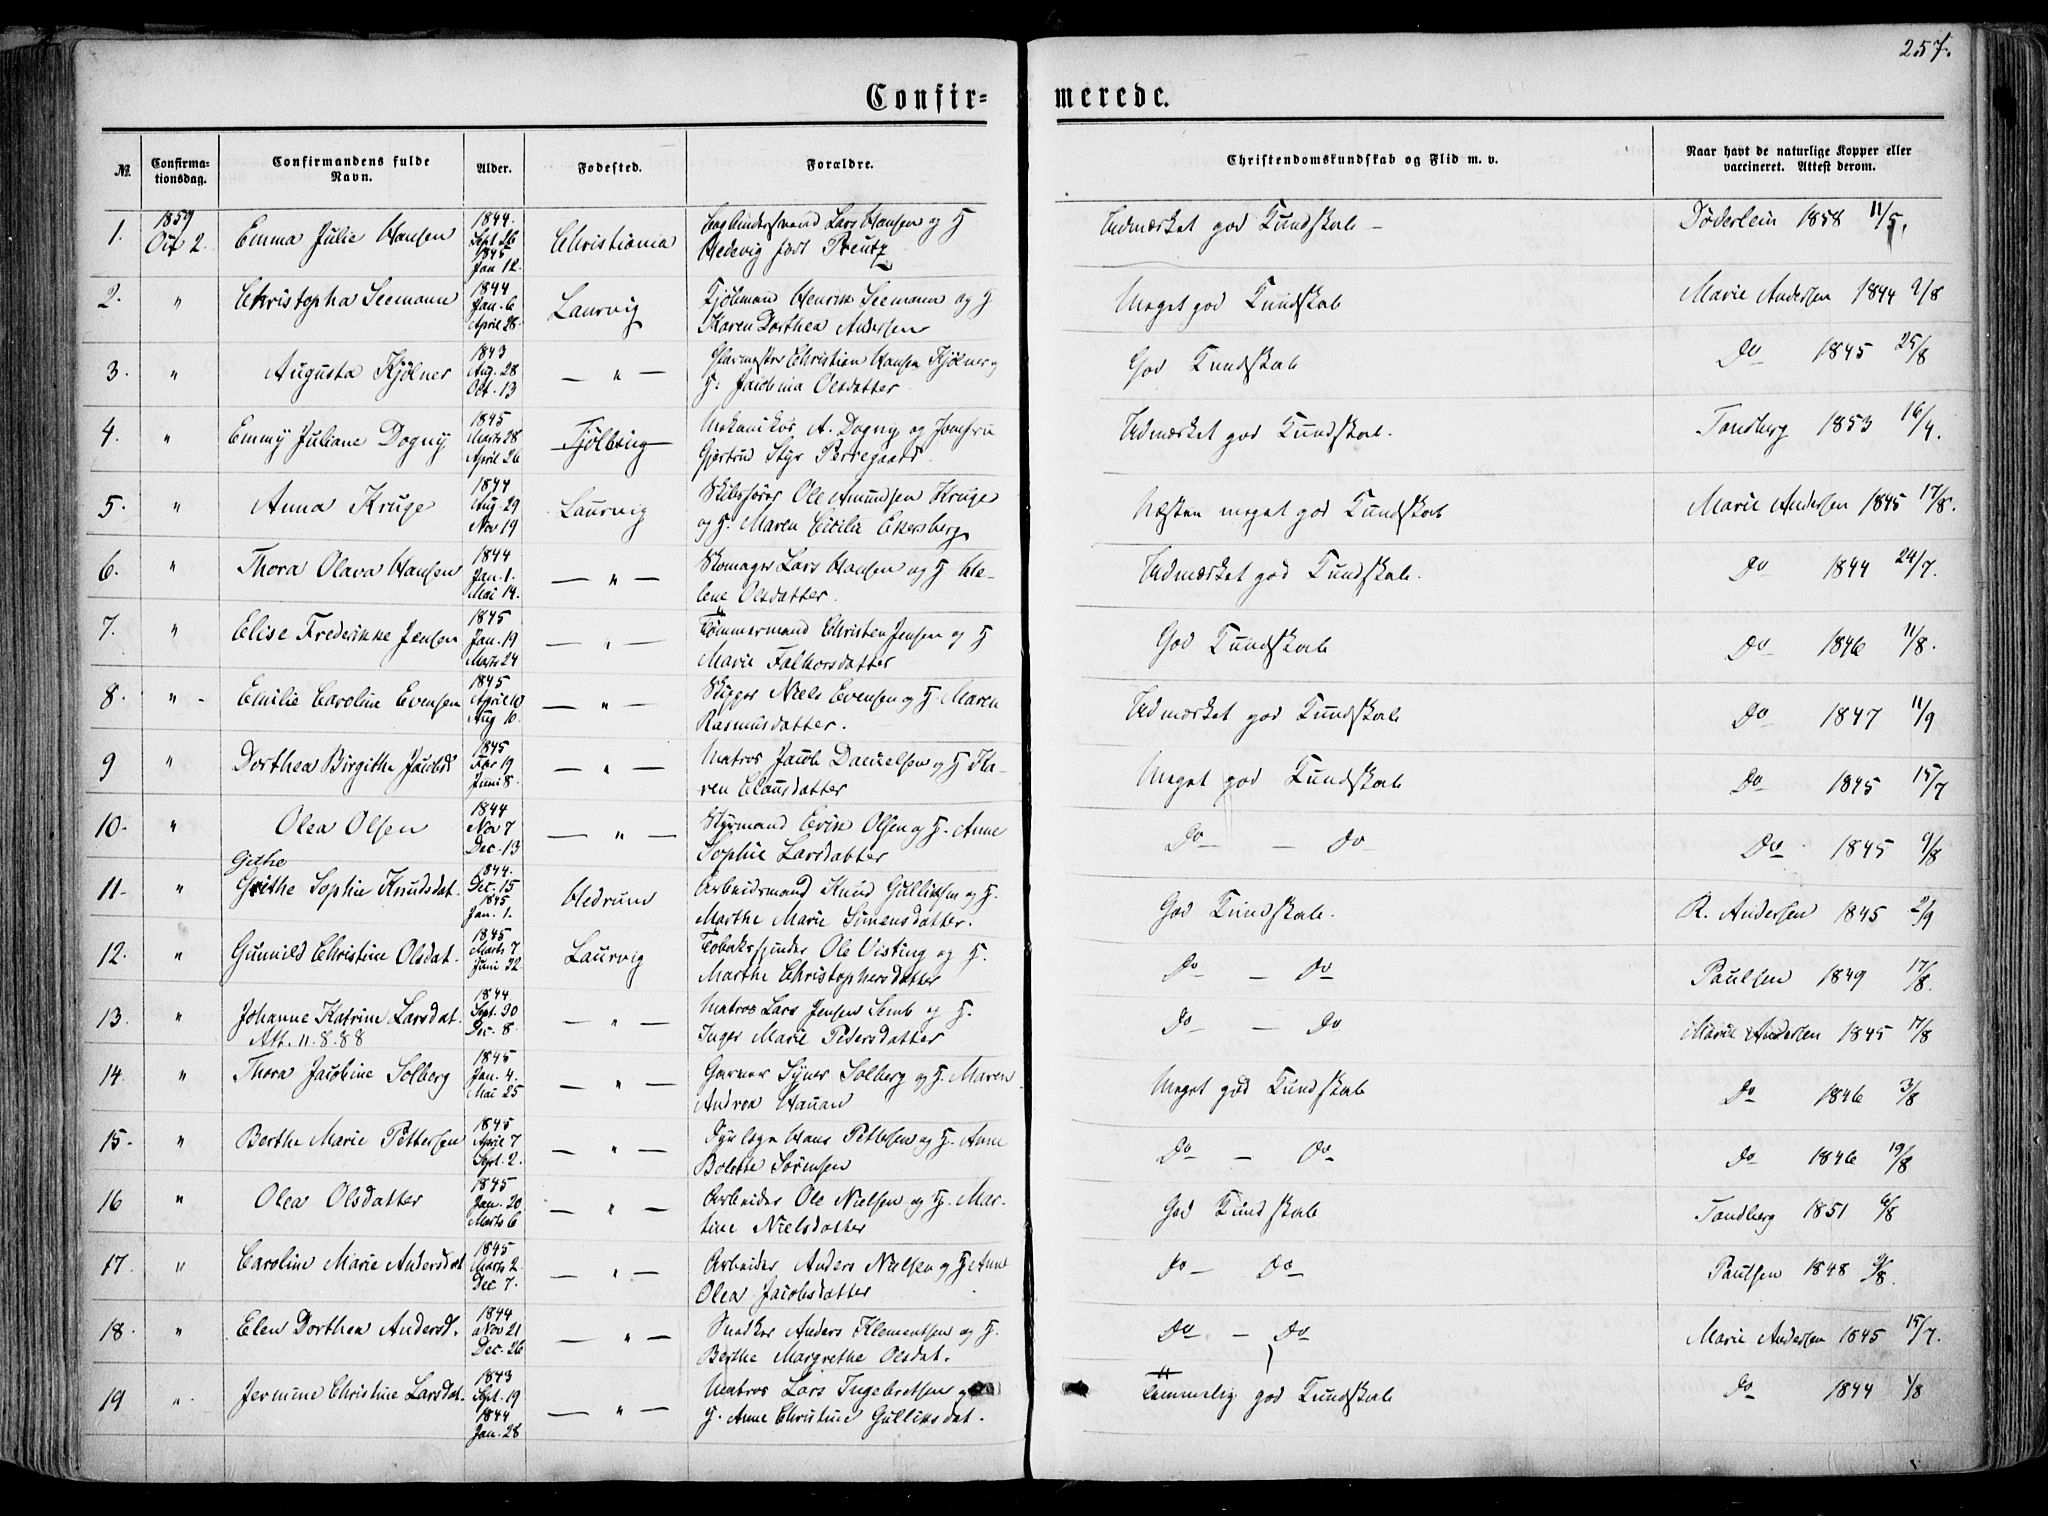 257.
Confir=
merede.
No. Confirma-tionsdag. Confirmandens fulde Navn. Alder. Fødested. Forældre. Christendomskundskab og Flid m. v. Naar havt de naturlige Kopper eller vaccineret. Attest derom.
1. 1859 Oct 2. Emma Julie Hansen 1844. Sept 26 1845 Jan 12. Christiania Lars Hansen og H Hedevig født Preutz Udmærket god Kundskab – Døderlein 1858 11/5.
2. " Christopha Seemann 1844 Jan. 6 April 28. Laurvig Henrik Seemann og H Karen Dorthea Andersen Meget god Kundskab Marie Andersen 1844 9/8
3. " Augusta Kjølner 1843 Aug. 28 Oct. 13 — " — Glarmester Christian Hansen Kjølner og H. Jacobina Olsdatter God Kundskab Do 1845 25/8
4. " Emmy Juliane Dogny 1845 Marts 28 April 26 Tjølling Mekanikus A. Dogny og Jomfru Gjertrud Styr Perregaard. Udmærket god Kundskab. Tandberg 1853 16/4.
5. " Anna Kruge 1844 Aug. 29 Nov 19 Laurvig Skibsfører Ole Amundsen Kruge og H. Maren Cicilie Ekersberg Næsten meget god Kundskab Marie Andersen 1845 17/8.
6. " Thora Olava Hansen 1844 Jan. 1. Mai 14. — " — Skomager Lars Hansen og H. Helene Olsdatter. Udmærket god Kundskab. Do 1844 24/7.
7. " Elise Frederikke Jensen 1845 Jan. 19 Marts 24 — " — Tømmermand Christen Jensen og H Marie Falkorsdatter God Kundskab Do 1846 11/8.
8. " - Emilie Caroline Evensen 1845 April 10 Aug 10. — " — Skipper Niels Evensen og H. Maren Rasmusdatter. Udmærket god Kundskab Do 1847 11/9
9 " Dorthea Birgithe Jacobsd 1845 Febr 19 Juni 8. — " — Matros Jacob Danielsen og H Karen Clausdatter Meget god Kundskab Do 1845 15/7
10. " Olea Olsen 1844 Nov 7 Dec. 13 — " — Styrmand Erik Olsen og H. Anne Sophie Larsdatter Do — Do Do 1845 9/8
Gjethe
11. " Grithe Sophie Knudsdat. 1844. Dec. 15 1845 Jan. 1. Hedrum Arbeidsmand Knud Gulliksen og H. Marthe Marie Simensdatter. God Kundskab. R. Andersen 1845 2/9
12. " Gunnild Christine Olsdat. 1845 Marts 7 Juni 22 Laurvig Tobaksspinder Ole Visting og H. Marthe Christophersdatter Do — Do Paulsen 1849 17/8.
13. " Johanne Katrine Larsdat. 1844. Sept. 30 Dec. 8. — " — Matros Lars Jensen Semb og H. Inger Marie Pedersdatter Do — Do Marie Andersen 1845 17/8
Att. 11.8.88
14. " Thora Jacobine Solberg 1845 Jan. 4. Mai 25 — " — Garver Syver Solberg og H. Maren Andrea Hauan Meget god Kundskab Do 1846 3/8
15. " Berthe Marie Pettersen 1845 April 7 Sept. 2. — " — Hans Pettersen og H. Anne Bolette Sørensen Do — Do Do 1846 19/8
16 " Olea Olsdatter 1845 Jan. 20 Marts 6 — " — Arbeider Ole Nielsen og H. Martine Nielsdatter God Kundskab Tandberg 1851 6/8
17. " Caroline Marie Andersdat 1845 Marts 2. Dec. 7. — " — Arbeider Anders Nielsen og H Anne Olea Jacobsdatter Do — Do Paulsen 1848 9/8.
18. " Elen Dorthea Andersd. 1844 Nov 21 Dec. 26 — " — Snedker Anders Klementsen og H. Berthe Margrethe Olsdat. Do. — Do Marie Andersen 1845 15/7.
19 " Jermine Christine Larsdat. 1843 Sept. 19 1844 Jan. 28 — " — Matros Lars Ingebretsen og H. Anne Christine Gulliksdat. Temmelig god Kundskab Do 1844 1/8